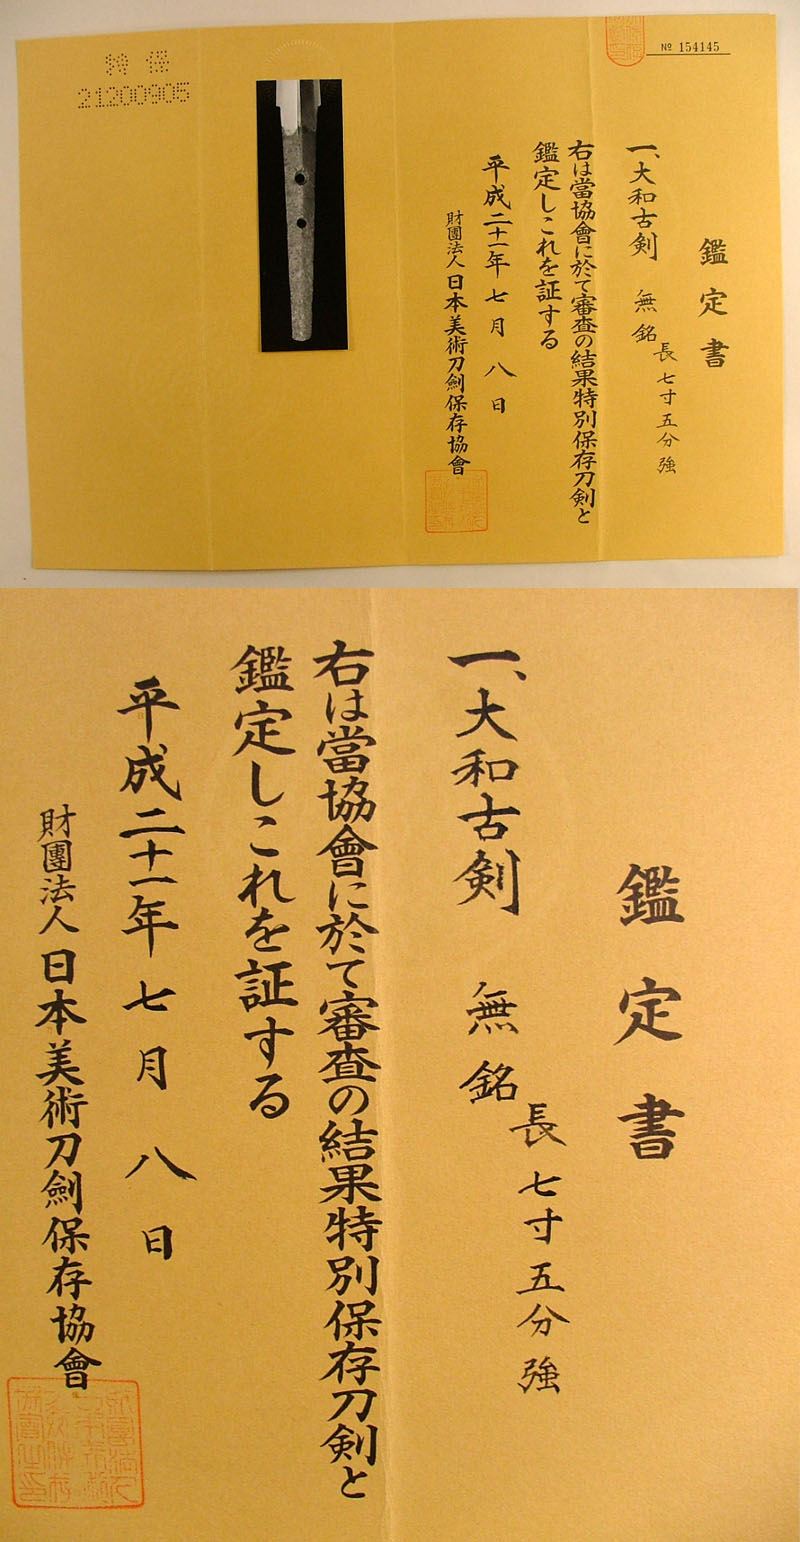 № 154145
特保
21200905
鑑定書
一、大和古剣 無銘
長七寸五分強
右は當協會に於て審査の結果特別保存刀剣と
鑑定しこれを証する
平成二十一年七月八日
財團法人日本美術刀劍保存協會
鑑定書
一、大和古剣 無銘
長七寸五分強
右は當協會に於て審査の結果特別保存刀剣と
鑑定しこれを証する
平成二十一年七月八日
財團法人日本美術刀劍保存協會